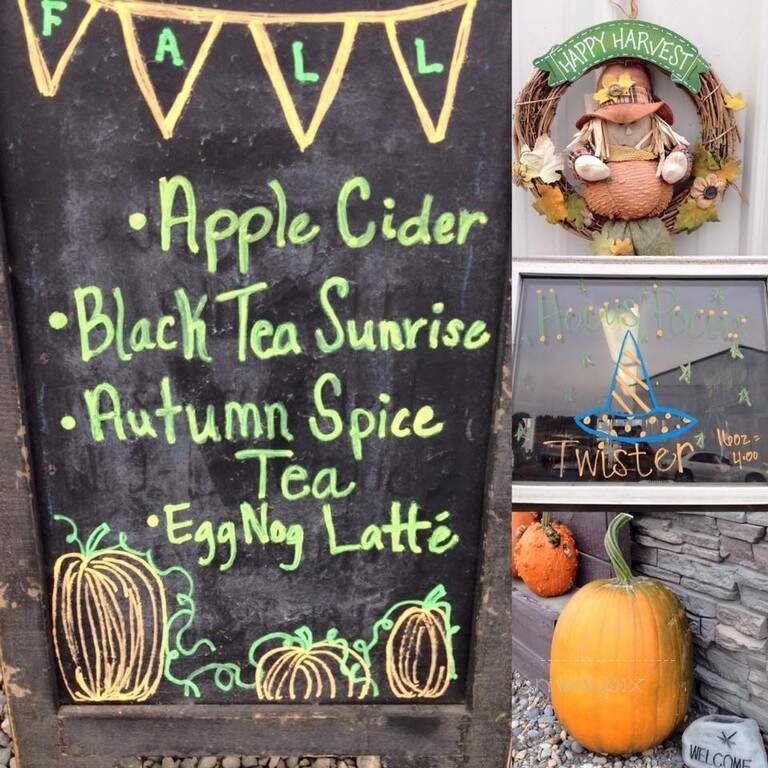 FALL
• Apple Cider
• Black Tea Sunrise
• Autumn Spice
Tea
• Egg Nog Latté
HAPPY HARVEST
Hocus Pocus
Twister
16oz =
4.00
WELCOME